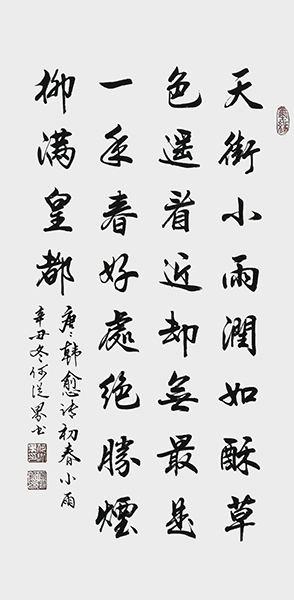 天街小雨潤如酥草
色遥看近却無最是
一年春好處絶勝煙
柳滿皇都
唐韓愈诗初春小雨
辛丑冬何书